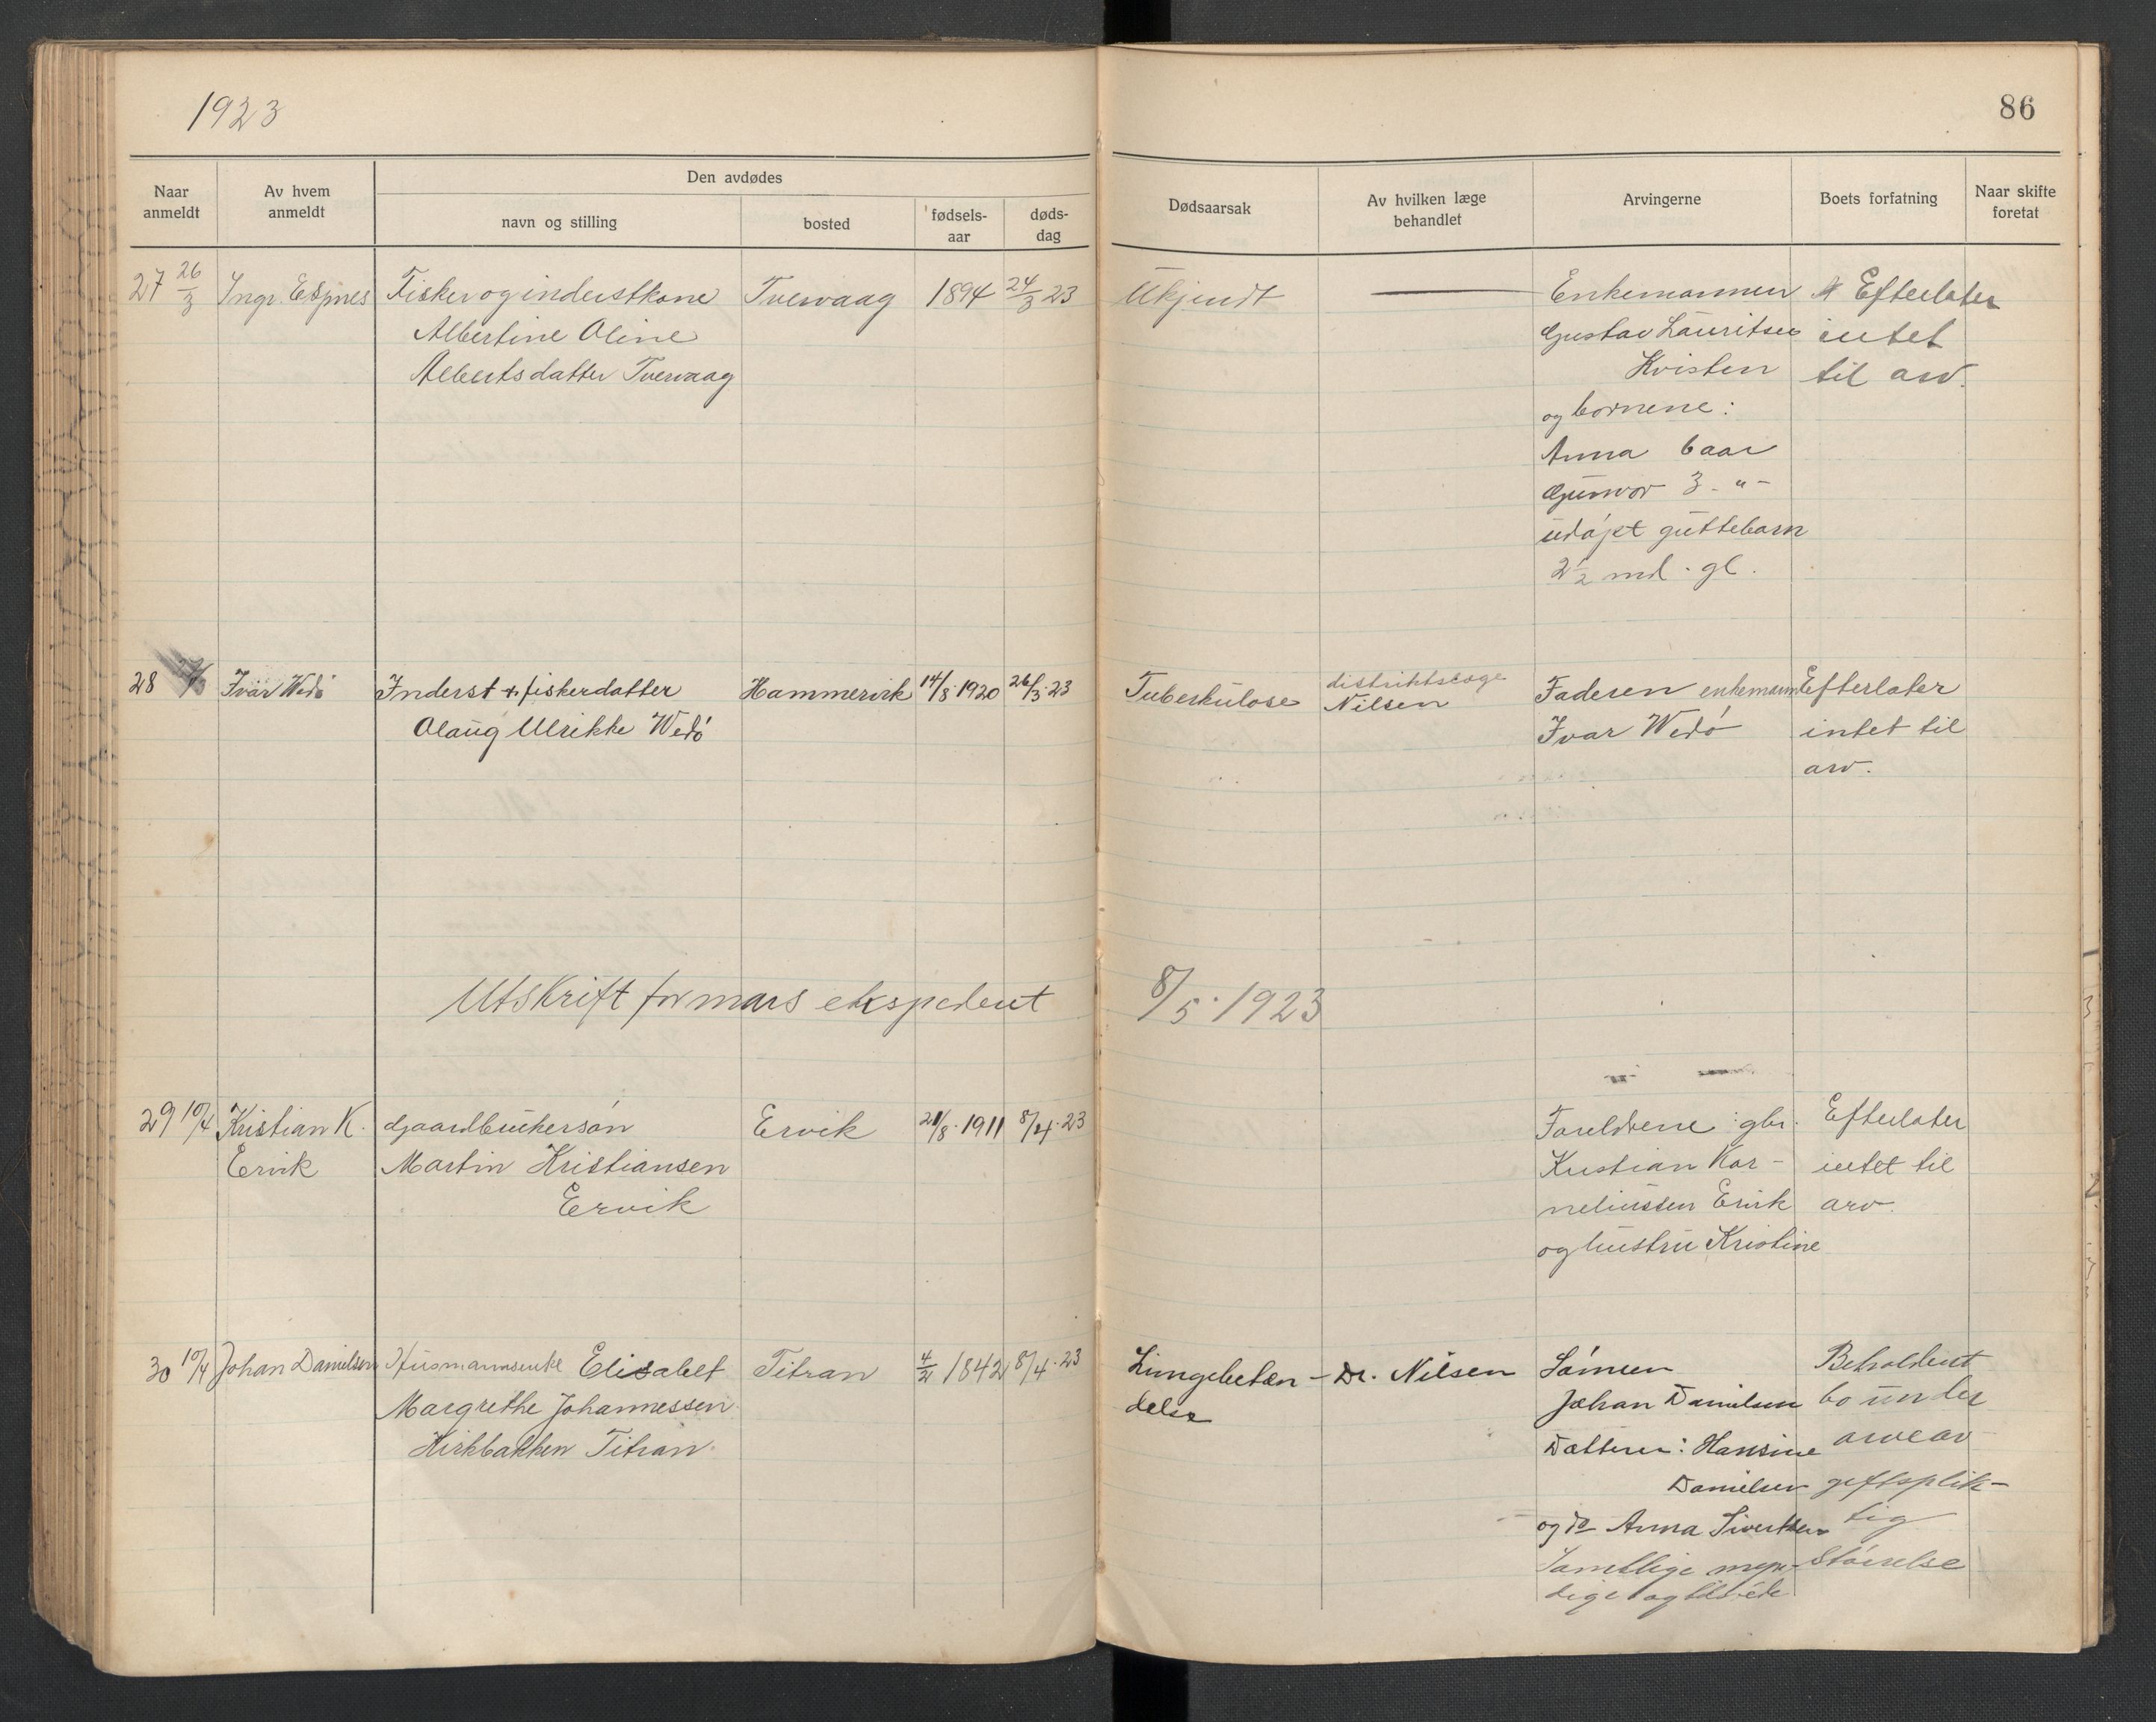 1923
86
Naar anmeldt
Av hvem anmeldt
Den avdødes
navn og stilling
bosted
fødsels-aar
døds-dag
Dødsaarsak
Av hvilken læge behandlet
Arvingerne
Boets forfatning
Naar skifte foretat
27 26/3 Ingr. Espnes Fisker og inderstkone Tvervaag 1894 24/3 23 Ukjendt — Enkemannen Efterlater
Albertine Oline Gustav Lauritsen intet
Albertsdatter Tvervaag Kvisten til arv.
og børnene:
Anna 6 aar
Gunvor 3 - " -
udøpt guttebarn
2 1/2 md. gl.
28 Ivar Wedø Inderst & fiskerdatter Hammervik 14/8 1920 26/3 23 Tuberkulose distriktslæge Nilsen Faderen enkemann Efterlater
Olaug Ulrikke Wedø Ivar Wedø intet til
arv.
Utskrift for mars ekspedert 8/5 1923
29 10/4 Kristian K. Gaardbrukersøn Ervik 21/8 1911 8/4 23 Forældrene: gbr. Efterlater
Ervik Martin Kristiansen Kristian Kor- intet til
Ervik neliussen Ervik arv.
og hustru Kristine
30 10/4 Johan Danielsen Husmannsenke Elisabet Titran 4/2 1842 8/4 23 Lungebetæn- Dr. Nilsen Sønnen Beholdent
Margrethe Johannessen delse Johan Danielsen bo under
Kirkbakken Titran Døttrene: Hansine arveav
Danielsen giftsplik-
og do Anna Sivertsen tig
Samtlige myn- Størrelse
dige og tilstede